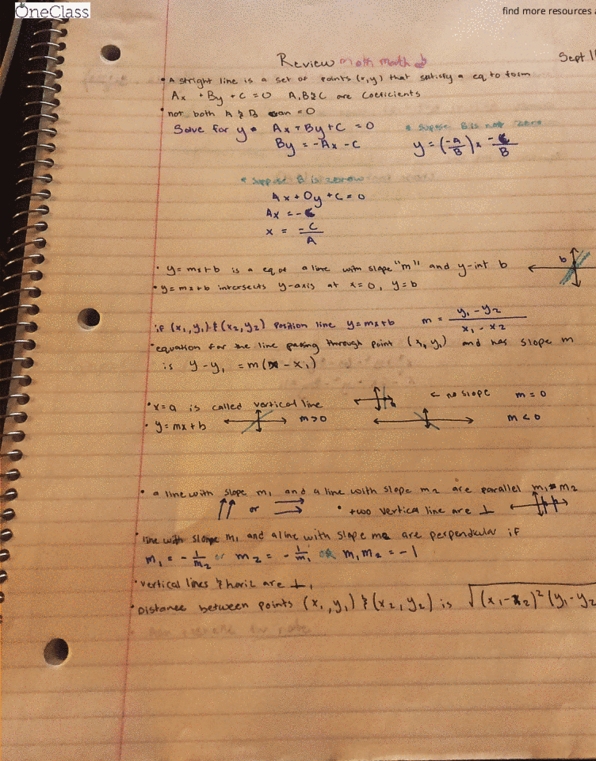 OneClass
find more resources
Review math math
Sept 11
• A stright line is a set of points (x,y) that satisfy a eq to form
Ax + By + C = 0 A, B & C are coeficients
• not both A & B can = 0
Solve for y • Ax + By + C = 0
* supose B is not zero
By = -Ax - C
y = (-A/B)x - C/B
* suppose B is zero
Ax + 0y + C = 0
Ax = -C
x = -C/A
• y = mx+b is a eq of a line with slope "m" and y-int b
b
• y = mx+b intersects y-axis at x=0, y=b
if (x₁,y₁) & (x₂,y₂) line y=mx+b m = y₁-y₂/x₁-x₂
• equation for the line passing through point (x₁,y₁) and has slope m
is y-y₁ = m(x-x₁)
• x=a is called vertical line
a
← no slope m=0
• y=mx+b
m>0
m<0
• a line with slope m₁ and a line with slope m₂ are parallel m₁=m₂
↑↑ or ⇉
• two vertical line are ⊥
line with slope m₁ and a line with slope m₂ are perpendicular if
m₁ = -1/m₂ or m₂ = -1/m₁ or m₁m₂ = -1
• vertical lines & horiz are ⊥
• Distance between points (x₁,y₁) & (x₂,y₂) is √(x₁-x₂)²(y₁-y₂